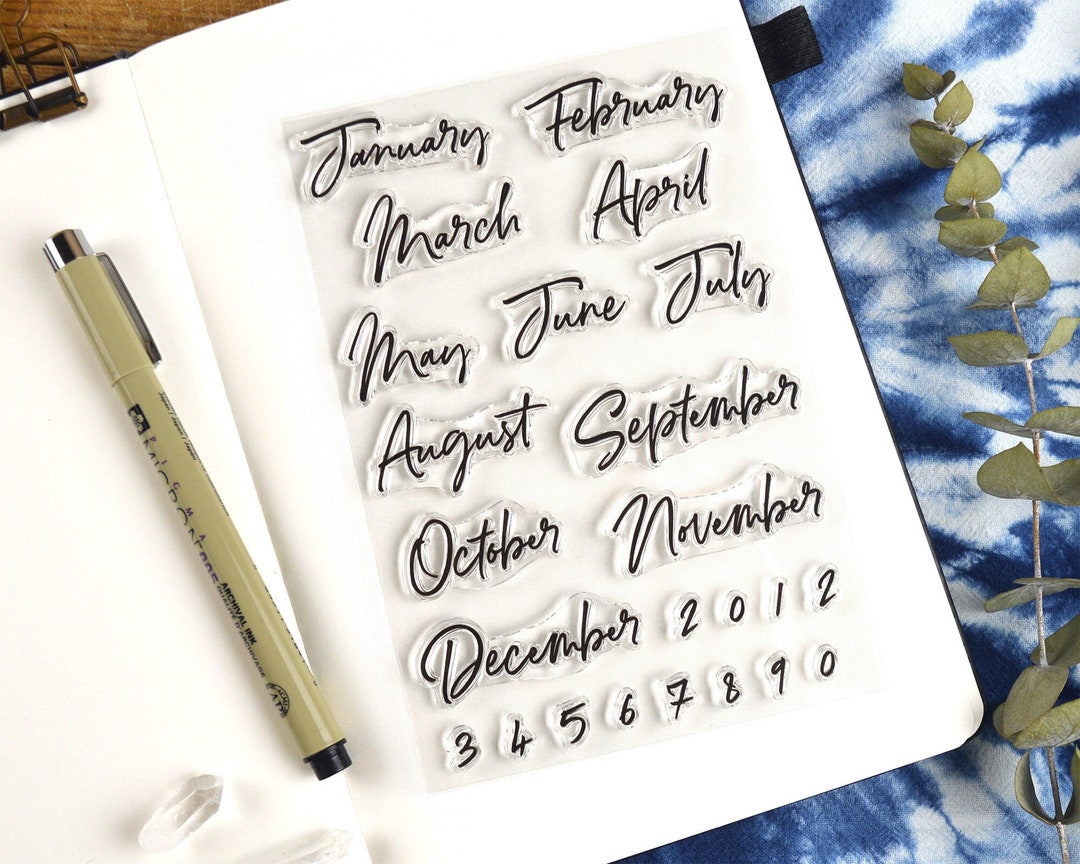 January February
March April
May June July
August September
October November
December 2 0 1 2
3 4 5 6 7 8 9 0
PIGMA
MICRON
ARCHIVAL INK
QUALITÉ D'ARCHIVAGE